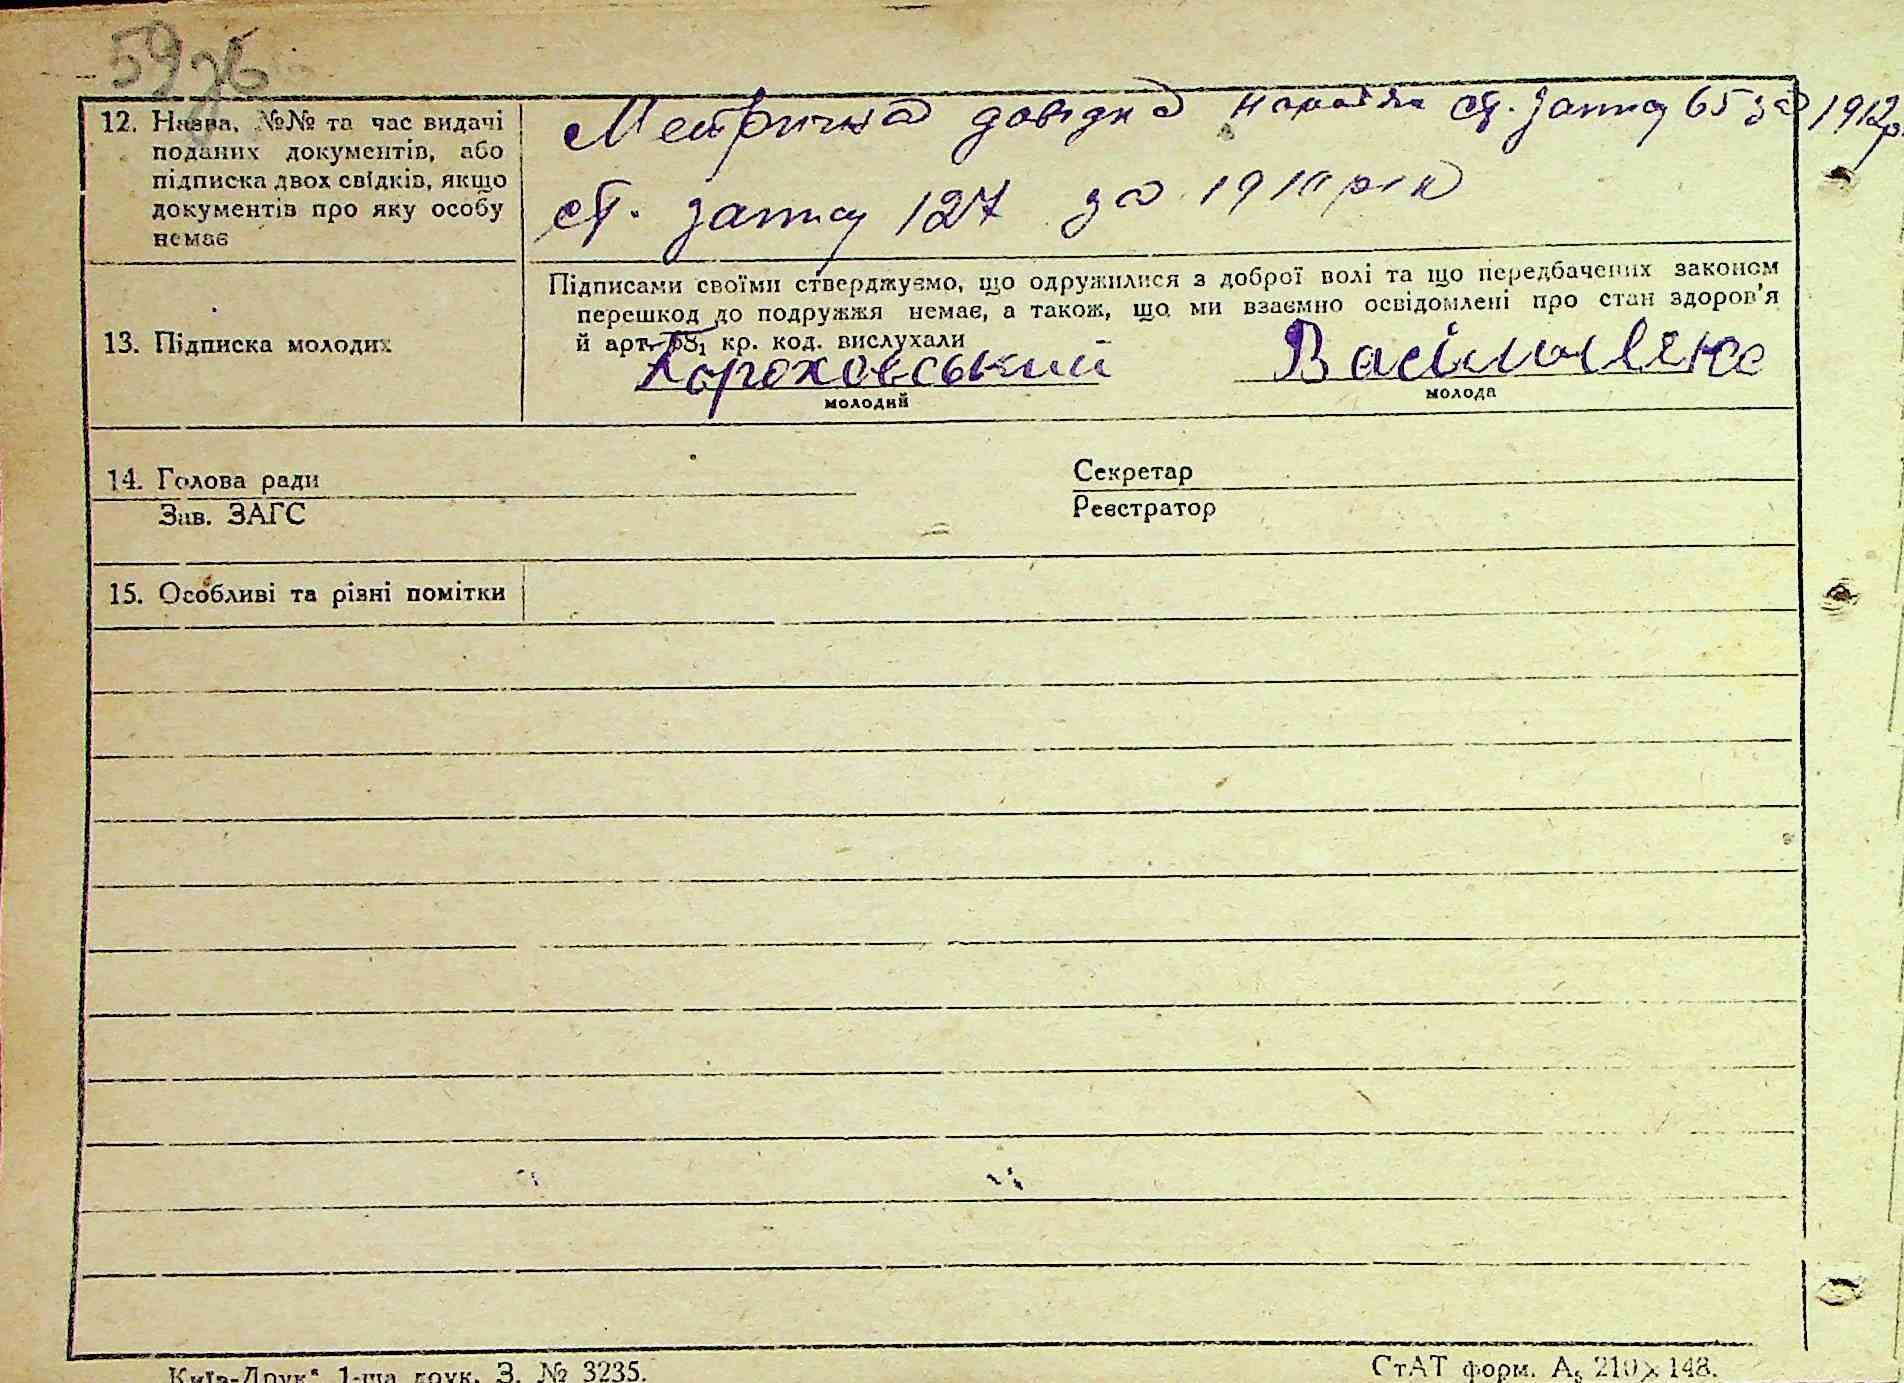 59зв
12. Назва, №№ та час видачі
поданих документів, або
підписка двох свідків, якщо
документів про яку особу
немає
Метрична довідка ст. запису 65 за 1912р.
ст. запису 127 за 1910 рік
13. Підписка молодих
Підписами своїми стверджуємо, що одружилися з доброї волі та що передбачених законом
перешкод до подружжя немає, а також, що ми взаємно освідомлені про стан здоров'я
й арт. 68₁ кр. код. вислухали
Гороховський
молодий
молода
14. Голова ради
Секретар
Зав. ЗАГС
Реєстратор
15. Особливі та різні помітки
Київ-Друк" 1-ша друк. З. № 3235.
СтАТ форм. А₅ 210×148.